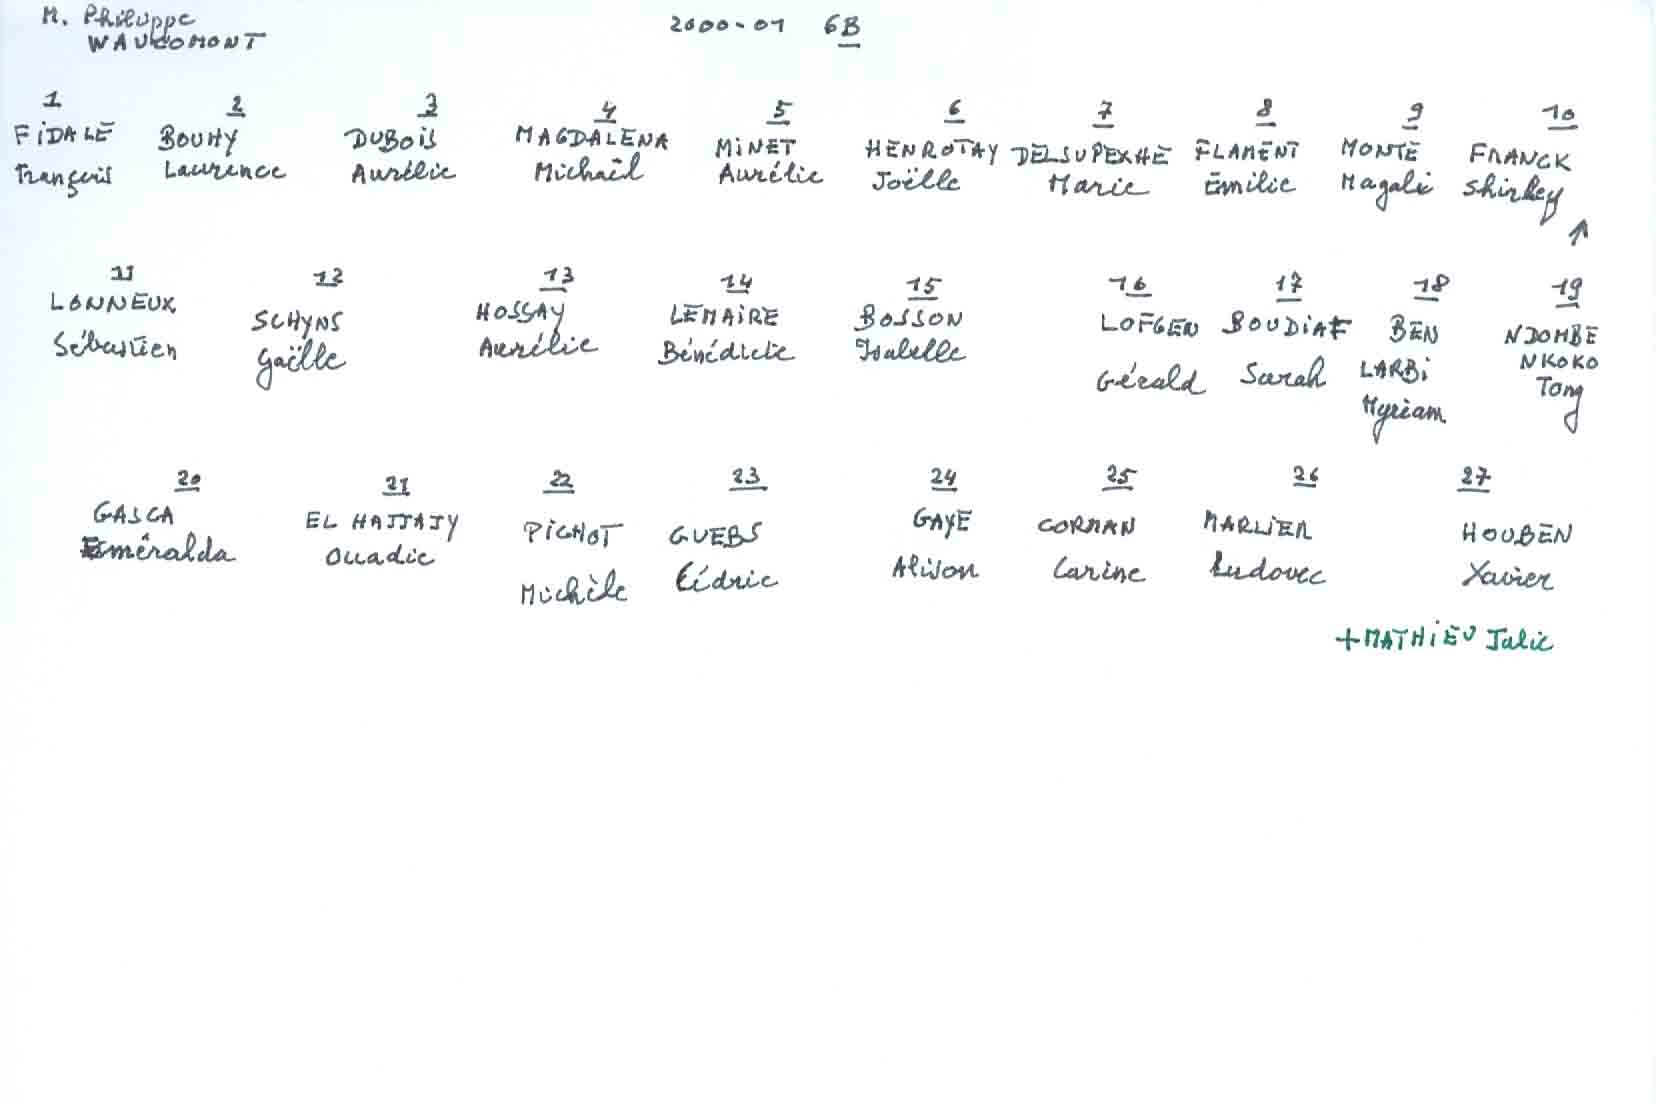 M. Philippe 2000-01 6B
WAUCOMONT
1 2 3 4 5 6 7 8 9 10
FIDALE BOUHY DUBOIS MAGDALENA MINET HENROTAY DELSUPEXHE FLAMENT MONTE FRANCK
François Laurence Aurélie Michaël Aurélie Joëlle Marie Émilie Magali Shirley
↑
11 12 13 14 15 16 17 18 19
LONNEUX SCHYNS HOSSAY LEMAIRE BOSSON LOFGEN BOUDIAF BEN NDOMBE
Sébastien Gaëlle Aurélie Bénédicte Isabelle Gérald Sarah LARBI NKOKO
Myriam Tony
20 21 22 23 24 25 26 27
GASCA EL HAJJAJY PICHOT GUEBS GAYE CORMAN MARLIER HOUBEN
Esméralda Ouadie Michèle Cédric Alison Carine Ludovic Xavier
+MATHIEU Julie